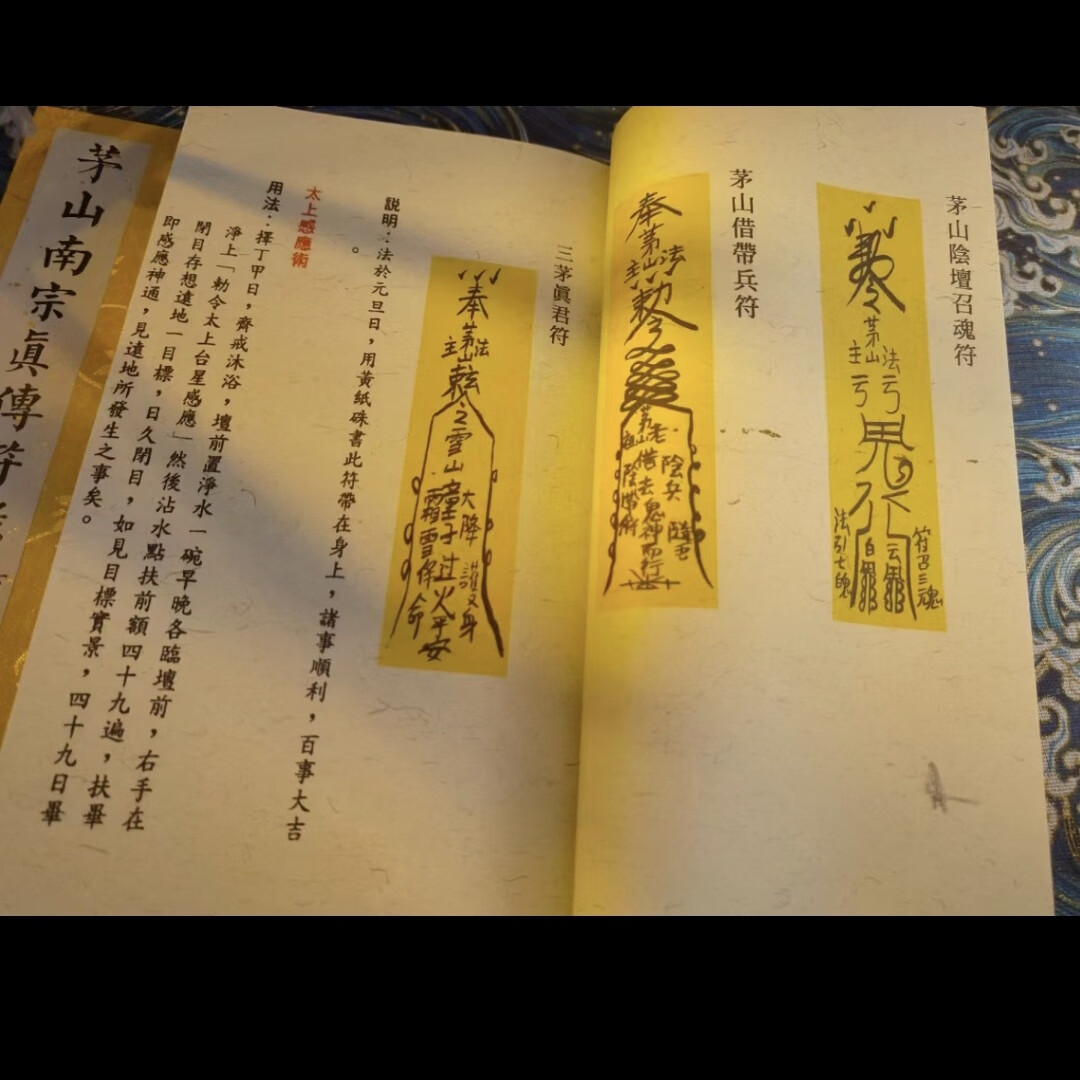 茅山陰壇召魂符
茅山
法
主
鬼
符召三魂
茅山借帶兵符
奉茅山法
主
勅令
陰兵
三茅眞君符
奉
茅山法
主
雪山
大降
童子过火平安
護身
霜雪保命
説明：法於元旦日，用黃紙硃書此符帶在身上，諸事順利，百事大吉
。
太上感應術
用法：擇丁甲日，齊戒沐浴，壇前置淨水一碗早晚各臨壇前，右手在
淨上「勅令太上台星感應」然後沾水點扶前額四十九遍，扶畢
閉目存想遠地一目標，日久閉目，如見目標實景，四十九日畢
即感應神通，見遠地所發生之事矣。
茅山南宗眞傳符